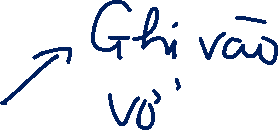 Ghi vào
vở